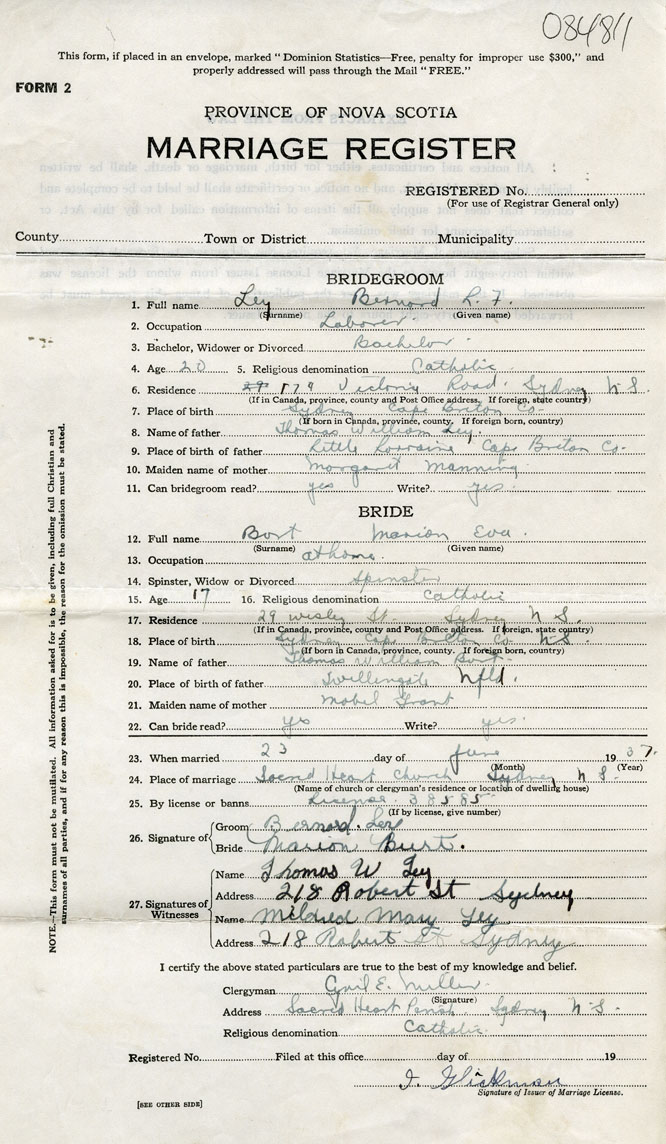 084811
This form, if placed in an envelope, marked “ Dominion Statistics—Free, penalty for improper use $300,” and
properly addressed will pass through the Mail “ FREE.”
FORM 2
PROVINCE OF NOVA SCOTIA
MARRIAGE REGISTER
REGISTERED No.
(For use of Registrar General only)
County Town or District Municipality
BRIDEGROOM
1. Full name Ley Bernard L. F.
(Surname) (Given name)
2. Occupation Laborer
3. Bachelor, Widower or Divorced Bachelor
4. Age 20 5. Religious denomination Catholic
6. Residence 179 Victoria Road. Sydney N S.
(If in Canada, province, county and Post Office address. If foreign, state country)
7. Place of birth Sydney Cape Breton Co.
(If born in Canada, province, county. If foreign born, country)
8. Name of father Thomas William Ley.
9. Place of birth of father Little Lorraine Cape Breton Co.
10. Maiden name of mother Margaret Manning
11. Can bridegroom read? yes Write? yes.
BRIDE
12. Full name Burt Marion Eva.
(Surname) (Given name)
13. Occupation at home.
14. Spinster, Widow or Divorced Spinster
15. Age 17 16. Religious denomination Catholic
17. Residence 29 Wesley St. Sydney N S.
(If in Canada, province, county and Post Office address. If foreign, state country)
18. Place of birth Sydney Cape Breton Co. N S.
(If born in Canada, province, county. If foreign born, country)
19. Name of father Thomas William Burt
20. Place of birth of father Twillingate Nfld.
21. Maiden name of mother Mabel Grant
22. Can bride read? yes Write? yes.
23. When married 23 day of June 1937.
(Month) (Year)
24. Place of marriage Sacred Heart Church Sydney N S.
(Name of church or clergyman's residence or location of dwelling house)
25. By license or banns License. 38585
(If by license, give number)
26. Signature of Groom Bernard. Ley
Bride Marion Burt.
27. Signatures of Witnesses Name Thomas W Ley
Address 218 Robert St Sydney
Name Mildred Mary Ley
Address 218 Robert St Sydney
I certify the above stated particulars are true to the best of my knowledge and belief.
Clergyman Cyril E. Miller
(Signature)
Address Sacred Heart Parish Sydney N S.
Religious denomination Catholic
Registered No. Filed at this office day of 19
I. Glickman
Signature of Issuer of Marriage License.
[SEE OTHER SIDE]
NOTE.—This form must not be mutilated. All information asked for is to be given, including full Christian and
surnames of all parties, and if for any reason this is impossible, the reason for the omission must be stated.